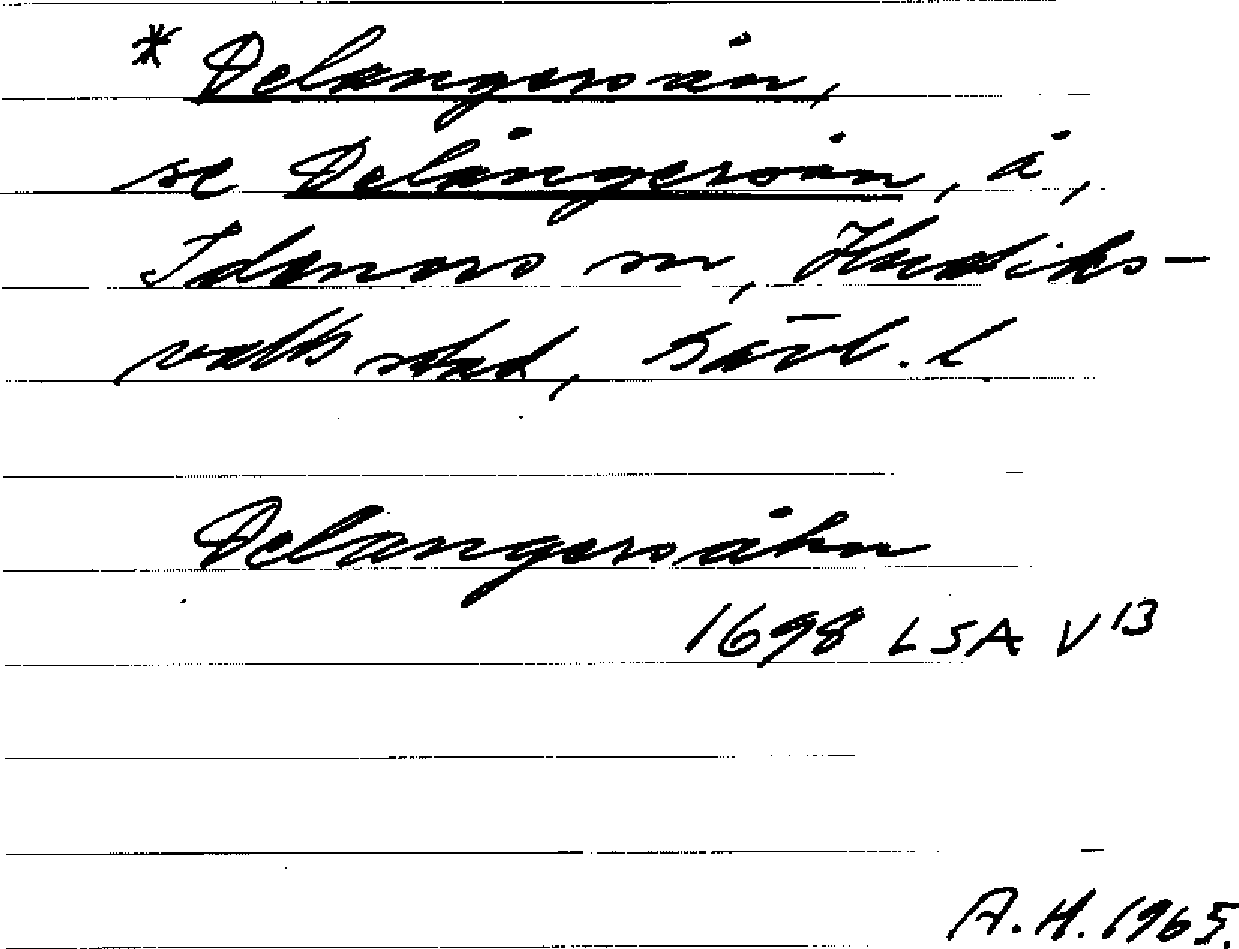 * Delangersån,
se Delångersån, å,
Idenors sn, Hudiks-
valls stad, Gävl. l.
Delangersåhn
1698 LSA V 13
A.H. 1965.